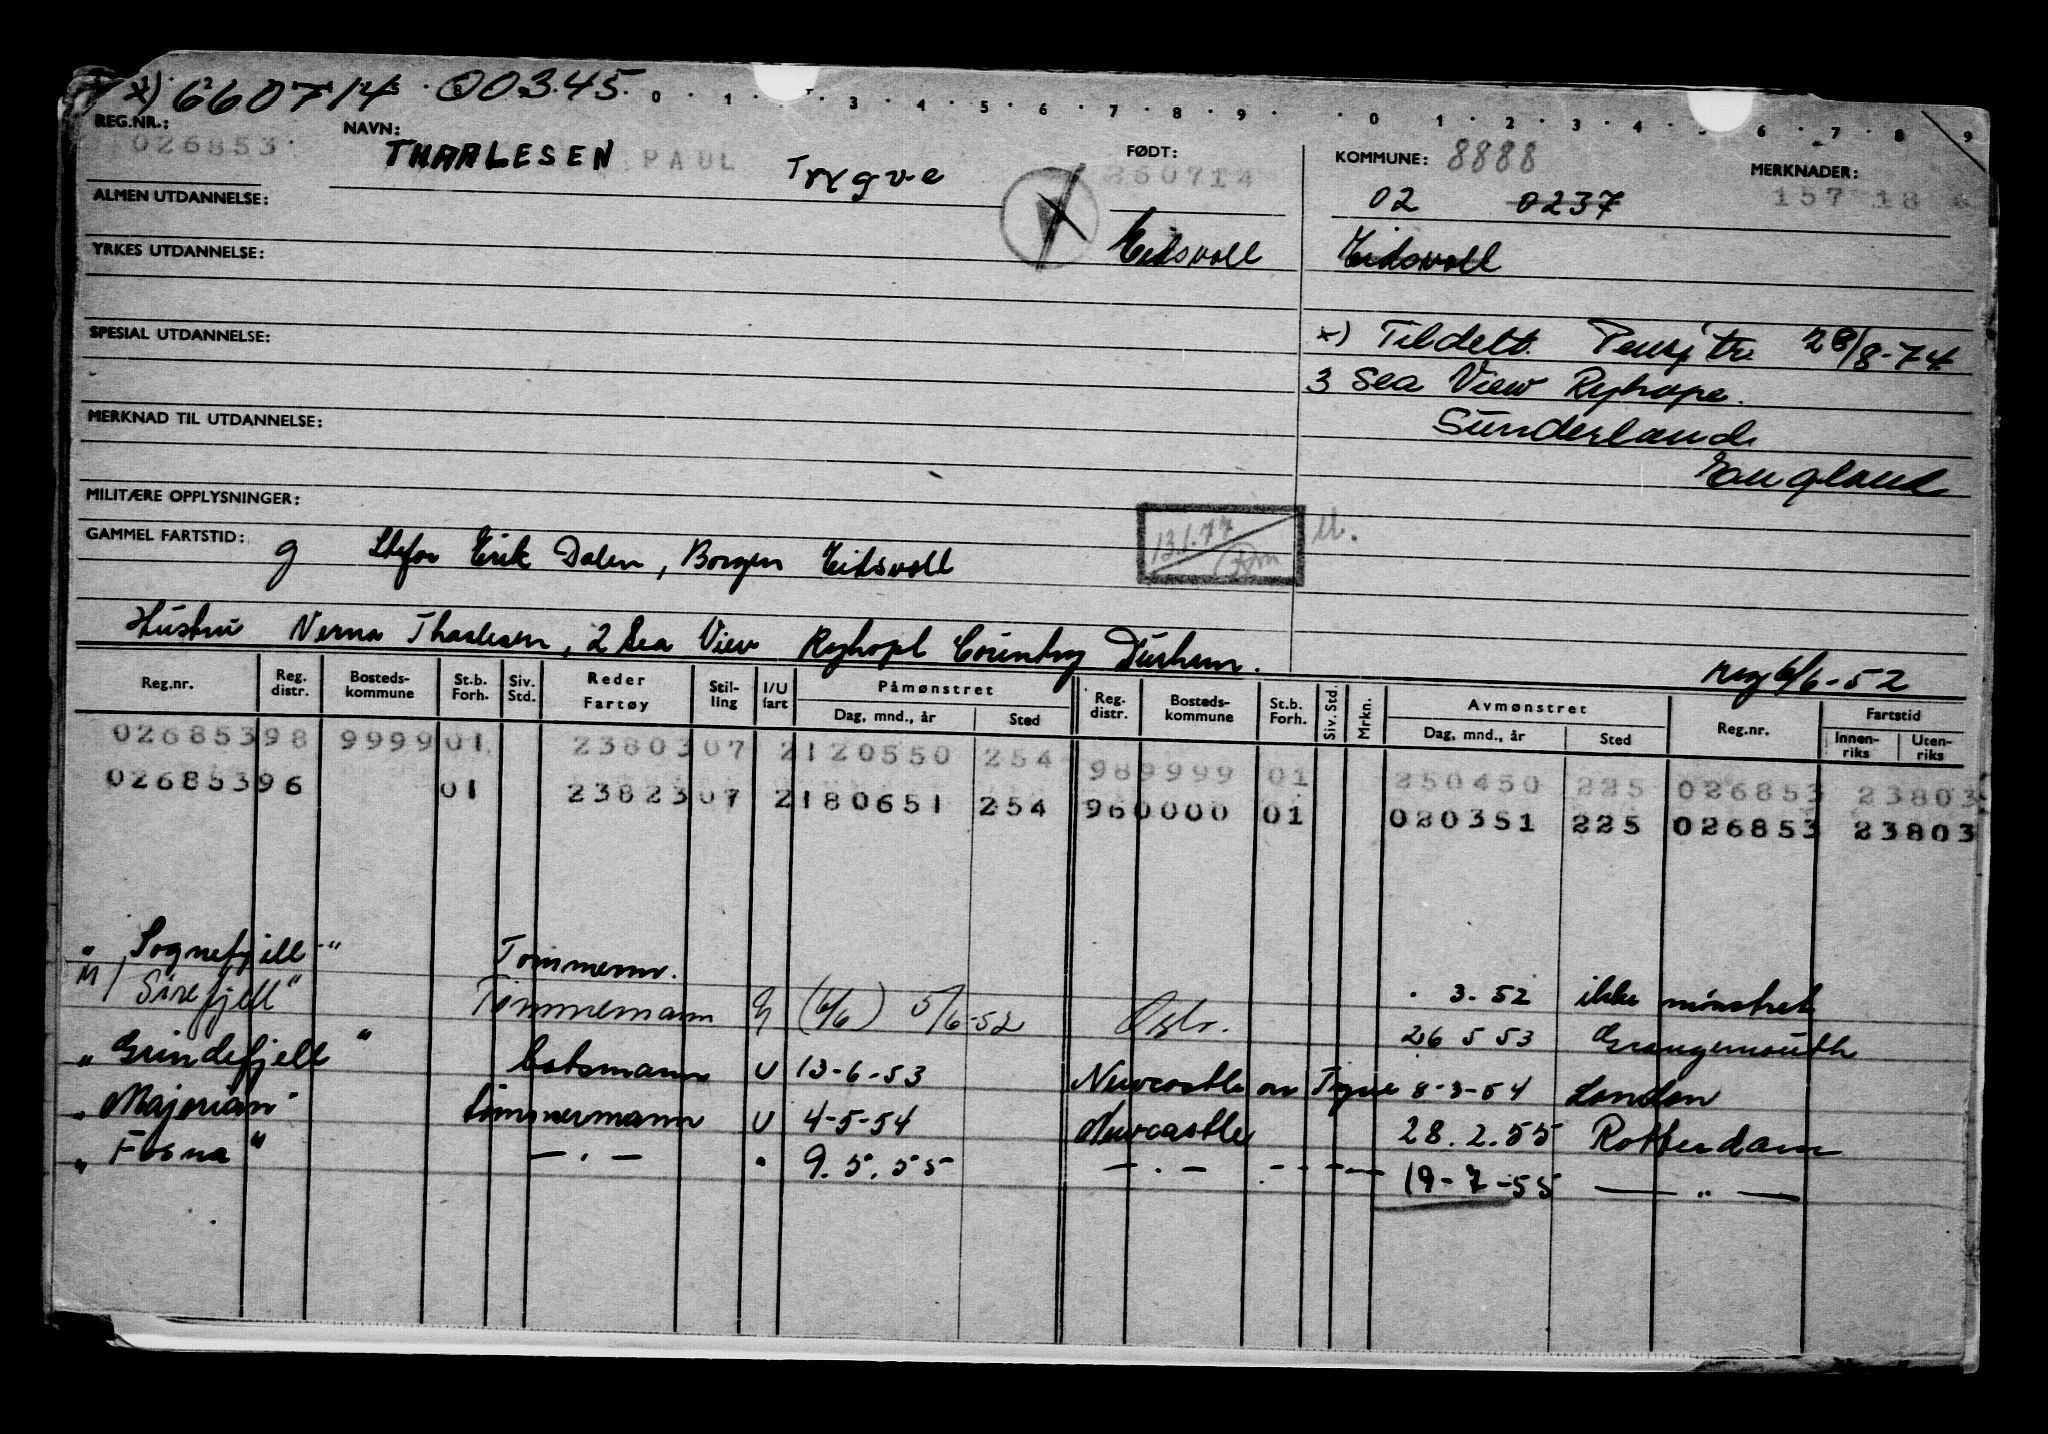 x) 660714 00345.
0 · 1 · 3 · 4 · 5 · 6 · 7 · 8 · 9 · · 0 · 1 · 2 · 3 · 4 · 5 · 6 · 7 · 8 · 9
REG.NR.: NAVN: FØDT: KOMMUNE: 8888 MERKNADER:
026853 THAALESEN PAUL Trygve 260714 02 0237 157 18
ALMEN UTDANNELSE:
YRKES UTDANNELSE: Eidsvoll Eidsvoll
SPESIAL UTDANNELSE: x) Tildelt. Pensjtr. 28/8-74
3 Sea View Ryhope.
MERKNAD TIL UTDANNELSE: Sunderland
England
MILITÆRE OPPLYSNINGER:
GAMMEL FARTSTID: g Stefar Erik Dalen, Borgen Eidsvoll 13.1.77
Hustru Verna Thaalesen, 2 Sea View Ryhopl Country Durham.
reg 6/6-52
Reg.nr. Reg. distr. Bosteds-kommune St.b. Forh. Siv. Std. Reder Fartøy Stil-ling I/U fart Påmønstret Dag, mnd., år Sted Reg. distr. Bosteds-kommune St.b. Forh. Siv. Std. Mrkn. Avmønstret Dag, mnd., år Sted Reg.nr. Fartstid Innen-riks Uten-riks
02685398 9999 01 23803 07 2 120550 254 98 9999 01 250450 225 026853 23803
02685396 01 23823 07 2 180651 254 96 0000 01 020351 225 026853 23803
" Sognefjell " Tømmerm. . 3. 52 ikke mønstret
M/ Sirefjell" Tømmemann (6/6) 5/6-52 Oslo. 26 5 53 Grangemouth
" Grindefjell " batsmann U 13-6-53 Newcastle on Tyne 8-3-54 London
" Majorian" tømmermann U 4-5-54 Newcastle 28.2.55 Rotterdam
" Fosna " — . — " 9. 5. 55 — . — - - - — 19-7-55 — " —